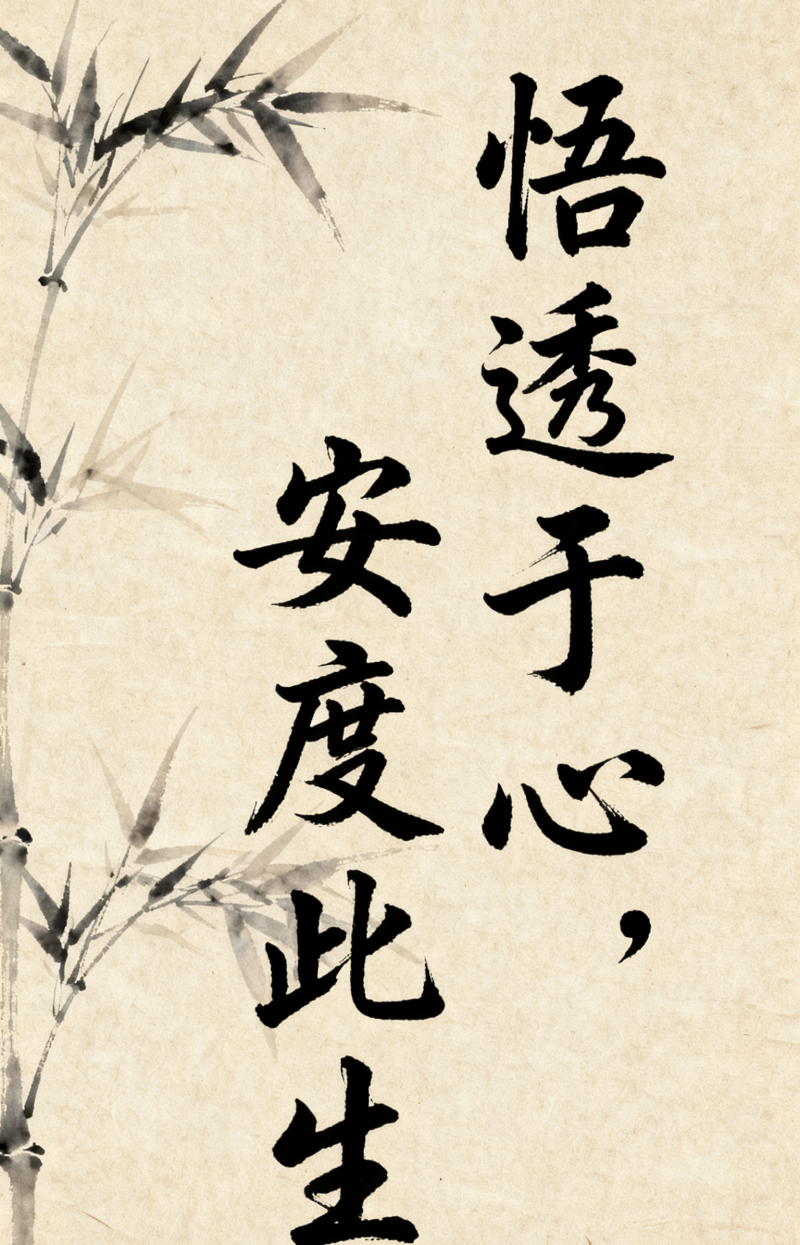 悟透于心，
安度此生